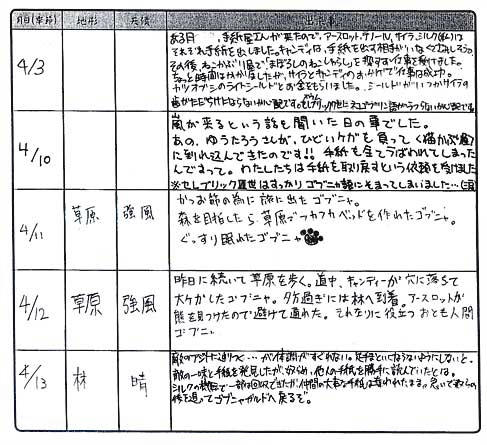 月日(季節) 地形 天候 出来事
4/3
ある日、手紙屋さんが来たので、アースロット、サノール、サイラ、ミルク(私)は
それぞれ手紙を出しました。キャンディは、手紙を出す相手がいなくてさみしそう。
その後、ねこかぶり屋で「まぼろしのねこじゃらし」を探す仕事を受けました。
ちょっと時間はかかりましたが、サイラとキャンディのおかげで仕事は成功。
カツオブシのライトシールドとお金をもらいました。
4/10
嵐が来るという話を聞いた日の事でした。
あの、ゆうたろうさんが、ひどいケガを負って<猫かぶ屋>
に倒れ込んできたのです!!手紙を全てうばわれてしまった
んですって。わたしたちは手紙を取り戻すという依頼を受けました
※セレブリック はすっかりゴブニャ にそまってしまいました…
4/11 草原 強風
かつお節の為に旅に出たゴブニャ。
森を目指したら、草原でフカフカベッドを作れたゴブニャ。
ぐっすり眠れたゴブニャ
4/12 草原 強風
昨日に続いて草原を歩く。道中、キャンディーが穴に落ちて
大ケガしたゴブニャ。夕方過ぎには林へ到着。アースロットが
熊を見つけたので避けて通れた。それなりに役立つおとも人間
ゴブニャ
4/13 林 晴
敵のアジトに辿りつく…が体調がすぐれない。足手まといにならないようにしないと。
敵の一味と手紙を発見したが、奴らめ、他人の手紙を勝手に読んでいたとは。
シルクの で一部は回収できたが仲間の大事な手紙は奪われたまま。急いで奴らの
後を追ってゴブニャガルドへ戻るぞ。